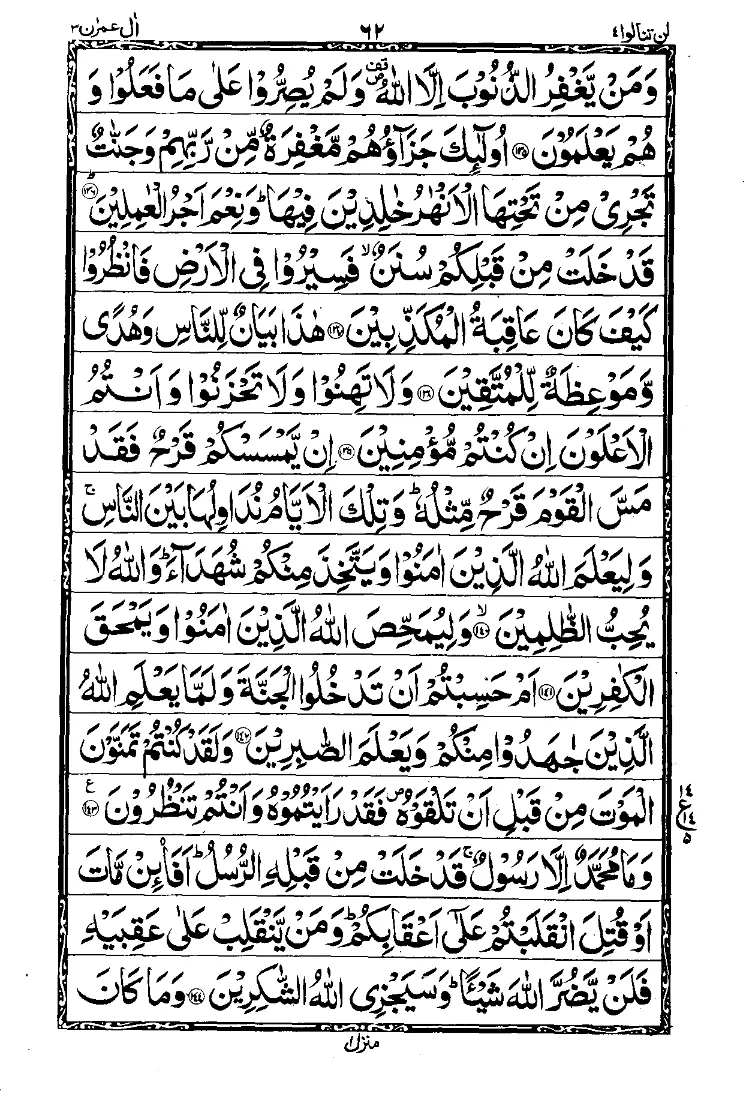 اٰل عمرٰن ۳ ٦٢ لن تنالوا ٤
وَمَنْ يَّغْفِرُ الذُّنُوْبَ اِلَّا اللّٰهُ ۪۟ وَلَمْ يُصِرُّوْا عَلٰى مَا فَعَلُوْا وَ
هُمْ يَعْلَمُوْنَ ﴿۱۳۵﴾ اُولٰٓئِكَ جَزَآؤُهُمْ مَّغْفِرَةٌ مِّنْ رَّبِّهِمْ وَجَنّٰتٌ
تَجْرِيْ مِنْ تَحْتِهَا الْاَنْهٰرُ خٰلِدِيْنَ فِيْهَا ؕ وَنِعْمَ اَجْرُ الْعٰمِلِيْنَ ؕ﴿۱۳۶﴾
قَدْ خَلَتْ مِنْ قَبْلِكُمْ سُنَنٌ ۙ فَسِيْرُوْا فِي الْاَرْضِ فَانْظُرُوْا
كَيْفَ كَانَ عَاقِبَةُ الْمُكَذِّبِيْنَ ﴿۱۳۷﴾ هٰذَا بَيَانٌ لِّلنَّاسِ وَهُدًى
وَّمَوْعِظَةٌ لِّلْمُتَّقِيْنَ ﴿۱۳۸﴾ وَلَا تَهِنُوْا وَلَا تَحْزَنُوْا وَاَنْتُمُ
الْاَعْلَوْنَ اِنْ كُنْتُمْ مُّؤْمِنِيْنَ ﴿۱۳۹﴾ اِنْ يَّمْسَسْكُمْ قَرْحٌ فَقَدْ
مَسَّ الْقَوْمَ قَرْحٌ مِّثْلُهٗ ؕ وَتِلْكَ الْاَيَّامُ نُدَاوِلُهَا بَيْنَ النَّاسِ ۚ
وَلِيَعْلَمَ اللّٰهُ الَّذِيْنَ اٰمَنُوْا وَيَتَّخِذَ مِنْكُمْ شُهَدَآءَ ؕ وَاللّٰهُ لَا
يُحِبُّ الظّٰلِمِيْنَ ۙ﴿۱۴۰﴾ وَلِيُمَحِّصَ اللّٰهُ الَّذِيْنَ اٰمَنُوْا وَيَمْحَقَ
الْكٰفِرِيْنَ ﴿۱۴۱﴾ اَمْ حَسِبْتُمْ اَنْ تَدْخُلُوا الْجَنَّةَ وَلَمَّا يَعْلَمِ اللّٰهُ
الَّذِيْنَ جٰهَدُوْا مِنْكُمْ وَيَعْلَمَ الصّٰبِرِيْنَ ﴿۱۴۲﴾ وَلَقَدْ كُنْتُمْ تَمَنَّوْنَ
الْمَوْتَ مِنْ قَبْلِ اَنْ تَلْقَوْهُ ۪ فَقَدْ رَاَيْتُمُوْهُ وَاَنْتُمْ تَنْظُرُوْنَ ﴿۱۴۳﴾ ع
۱۴ ع ۱۴ ۵
وَمَا مُحَمَّدٌ اِلَّا رَسُوْلٌ ۚ قَدْ خَلَتْ مِنْ قَبْلِهِ الرُّسُلُ ؕ اَفَا۠ئِنْ مَّاتَ
اَوْ قُتِلَ انْقَلَبْتُمْ عَلٰٓى اَعْقَابِكُمْ ؕ وَمَنْ يَّنْقَلِبْ عَلٰى عَقِبَيْهِ
فَلَنْ يَّضُرَّ اللّٰهَ شَيْـًٔا ؕ وَسَيَجْزِي اللّٰهُ الشّٰكِرِيْنَ ﴿۱۴۴﴾ وَمَا كَانَ
منزل ۱